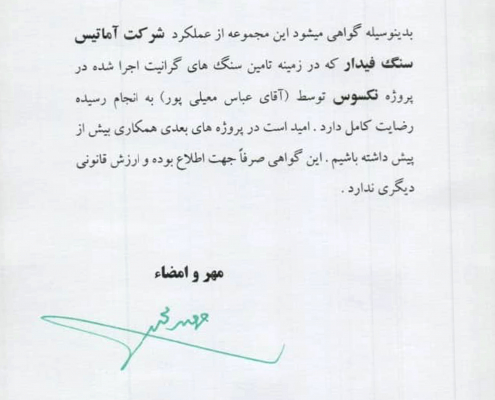 بدینوسیله گواهی میشود این مجموعه از عملکرد شرکت آماتیس
سنگ فیدار که در زمینه تامین سنگ های گرانیت اجرا شده در
پروژه نکسوس توسط (آقای عباس معیلی پور) به انجام رسیده
رضایت کامل دارد . امید است در پروژه های بعدی همکاری بیش از
پیش داشته باشیم . این گواهی صرفاً جهت اطلاع بوده و ارزش قانونی
دیگری ندارد .
مهر و امضاء